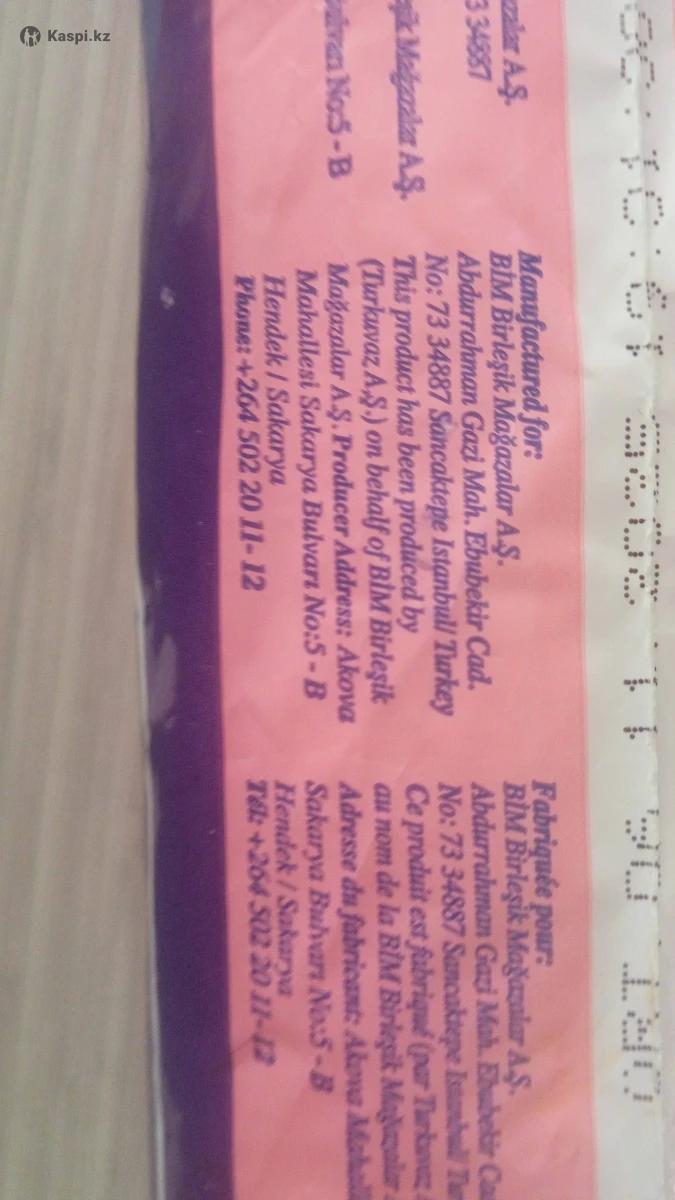 Kaspi.kz
A.Ş.
73 34887
Mağazalar A.Ş.
No:5 - B
Manufactured for:
BİM Birleşik Mağazalar A.Ş.
Abdurrahman Gazi Mah. Ebubekir Cad.
No: 73 34887 Sancaktepe Istanbul/ Turkey
This product has been produced by
(Turkuvaz A.Ş.) on behalf of BİM Birleşik
Mağazalar A.Ş. Producer Address: Akova
Mahallesi Sakarya Bulvarı No:5 - B
Hendek / Sakarya
Phone: +264 502 20 11- 12
Fabriquée pour:
BİM Birleşik Mağazalar A.Ş.
Abdurrahman Gazi Mah. Ebubekir
No: 73 34887 Sancaktepe Istanbul/
Ce produit est fabriqué (par Turkuvaz
au nom de la BİM Birleşik Mağazalar
Adresse du fabricant: Akova
Sakarya Bulvarı No:5 - B
Hendek / Sakarya
Tél: +264 502 20 11- 12